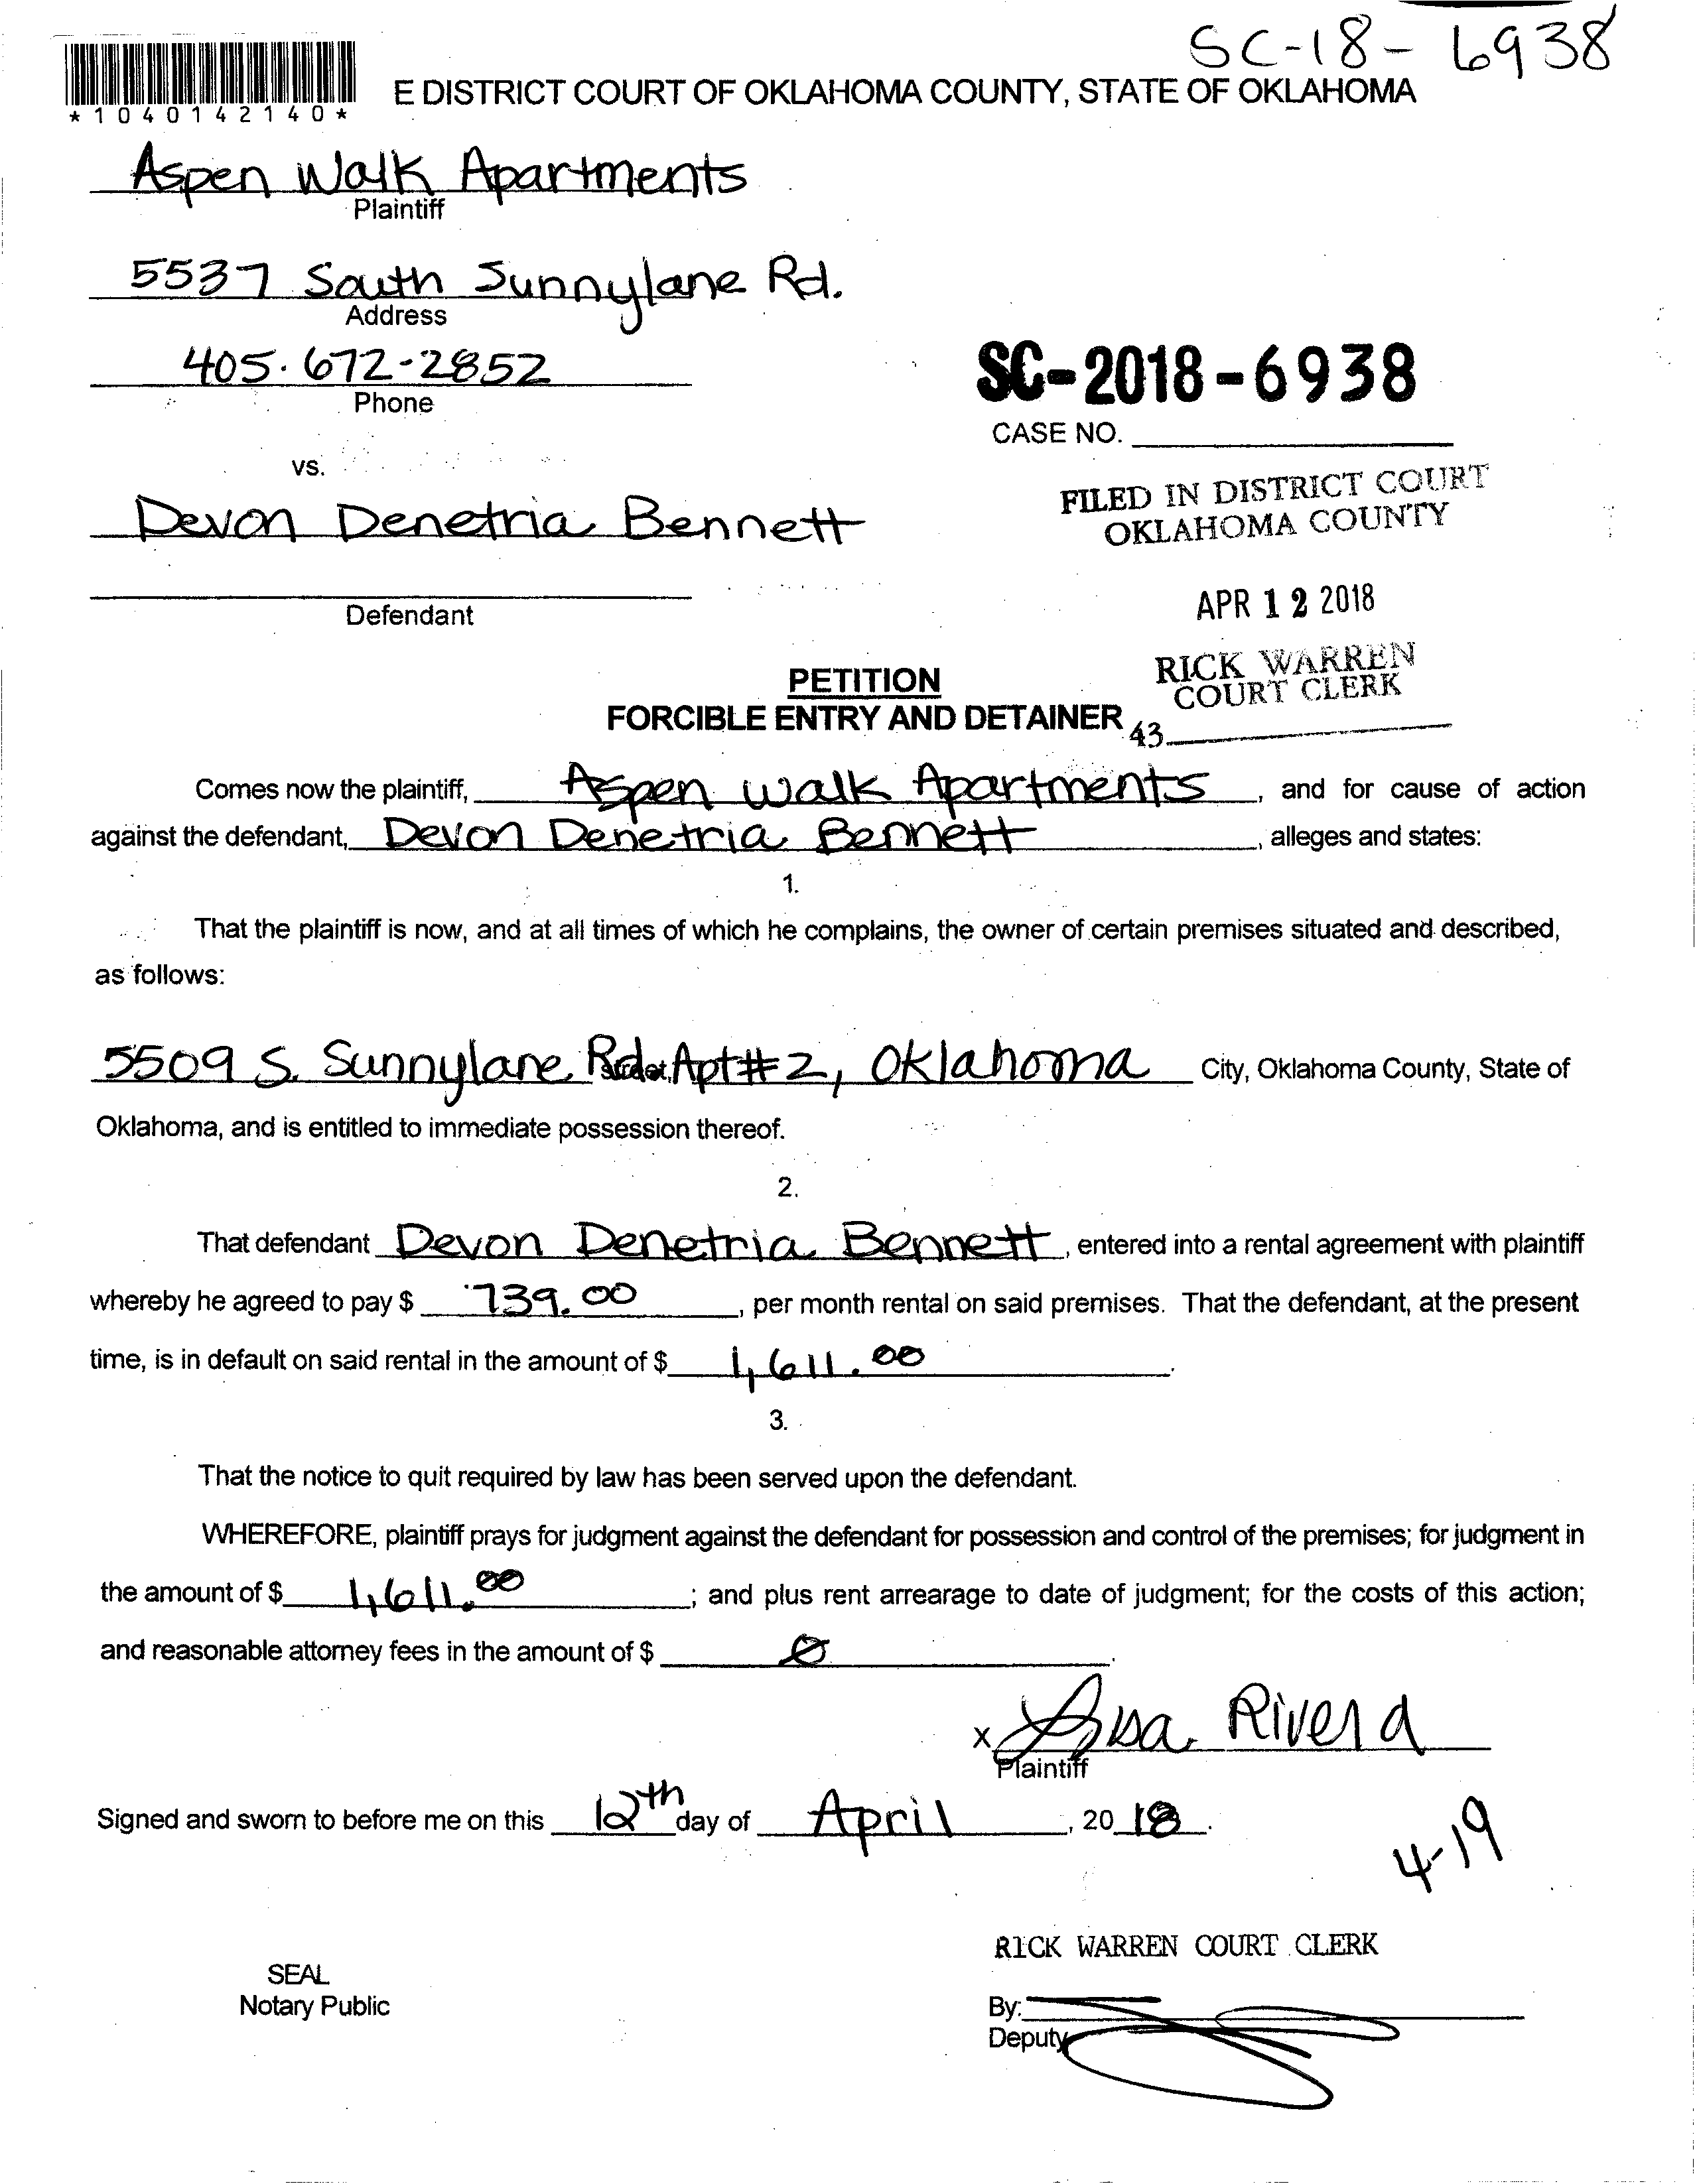 SC-18-6938
*1040142140*
E DISTRICT COURT OF OKLAHOMA COUNTY, STATE OF OKLAHOMA
Aspen Walk Apartments
Plaintiff
5537 South Sunnylane Rd.
Address
405.672-2852
Phone
SC-2018-6938
CASE NO.
vs.
FILED IN DISTRICT COURT
OKLAHOMA COUNTY
Devon Denetria Bennett
APR 12 2018
Defendant
RICK WARREN
COURT CLERK
PETITION
FORCIBLE ENTRY AND DETAINER
43
Comes now the plaintiff, Aspen Walk Apartments, and for cause of action
against the defendant, Devon Denetria Bennett, alleges and states:
1.
That the plaintiff is now, and at all times of which he complains, the owner of certain premises situated and described,
as follows:
5509 S. Sunnylane Rd. Apt#2, Oklahoma City, Oklahoma County, State of
Oklahoma, and is entitled to immediate possession thereof.
2.
That defendant Devon Denetria Bennett, entered into a rental agreement with plaintiff
whereby he agreed to pay $ 739.00, per month rental on said premises. That the defendant, at the present
time, is in default on said rental in the amount of $ 1,611.00.
3.
That the notice to quit required by law has been served upon the defendant.
WHEREFORE, plaintiff prays for judgment against the defendant for possession and control of the premises; for judgment in
the amount of $ 1,611.00; and plus rent arrearage to date of judgment; for the costs of this action;
and reasonable attorney fees in the amount of $ Ø.
x Lisa Rivera
Plaintiff
Signed and sworn to before me on this 12th day of April, 2018.
4-19
RICK WARREN COURT CLERK
SEAL
Notary Public
By:
Deputy